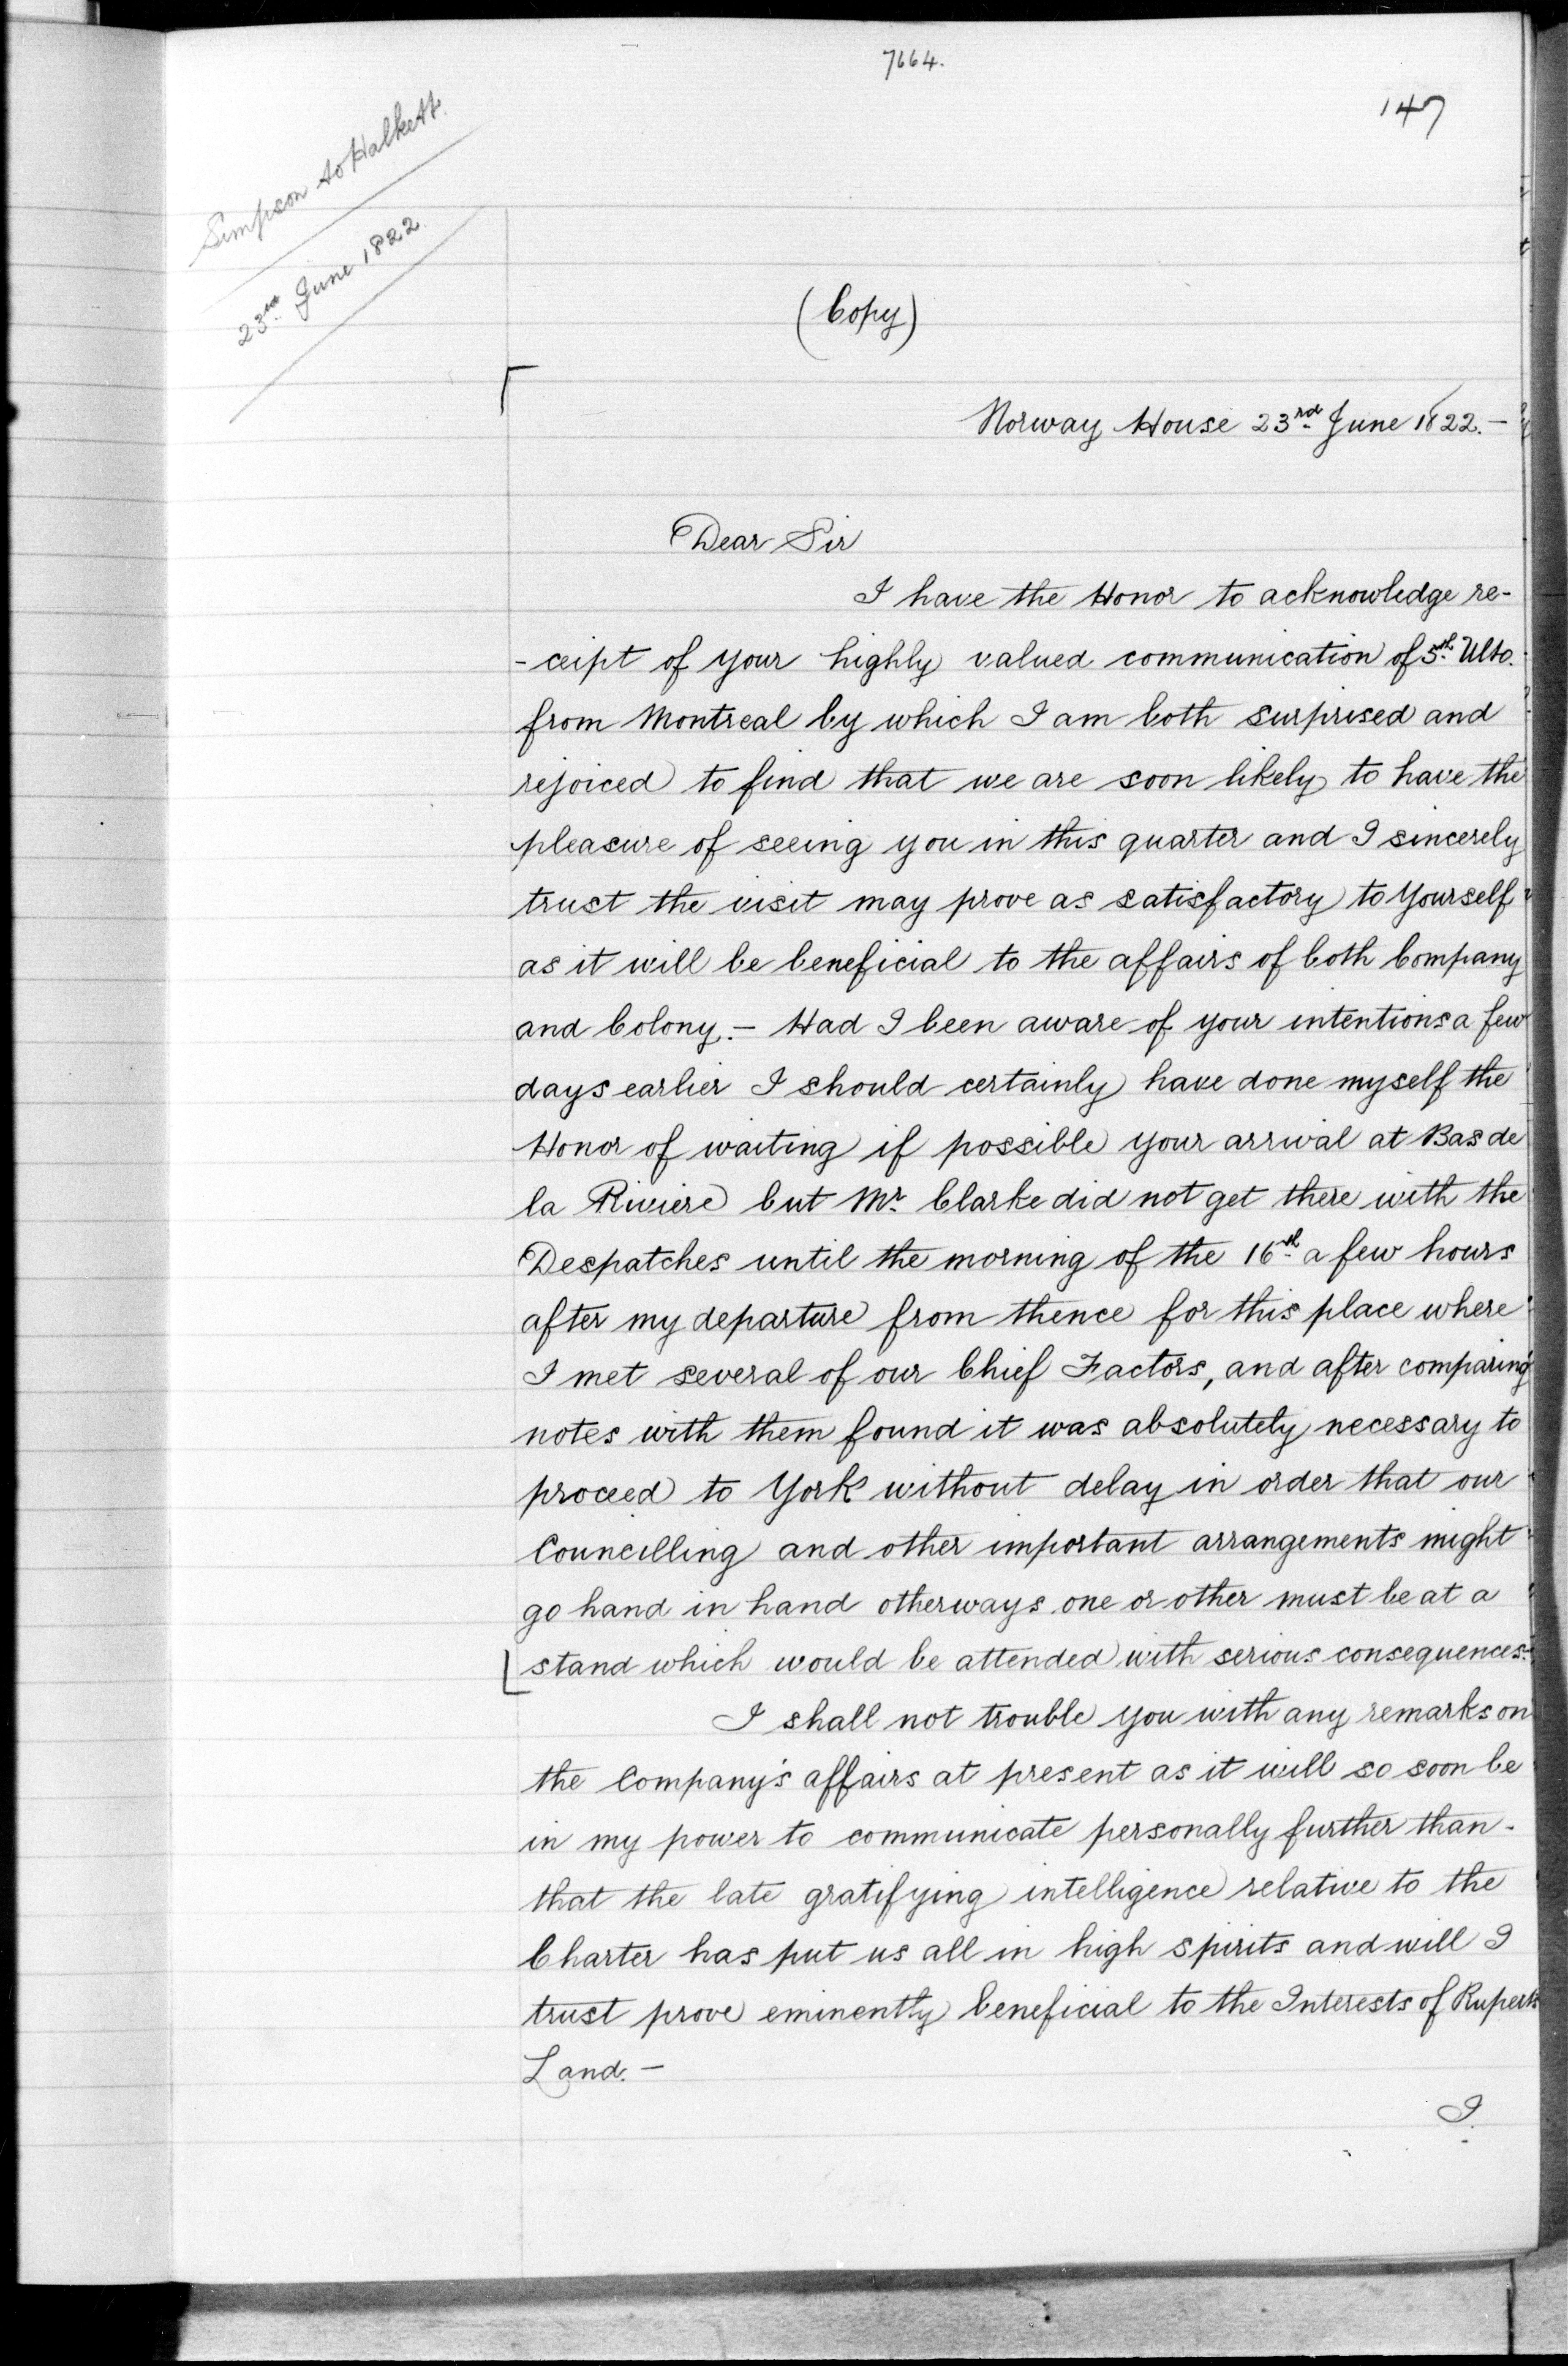 7664.
147
Simpson to Halkett.
23rd June 1822.
(Copy)
Norway House 23rd June 1822.—
Dear Sir
I have the Honor to acknowledge re-
-ceipt of your highly valued communication of 5th Ulto.
from Montreal by which I am both surprised and
rejoiced to find that we are soon likely to have the
pleasure of seeing you in this quarter and I sincerely
trust the visit may prove as satisfactory to Yourself
as it will be beneficial to the affairs of both Company
and Colony.— Had I been aware of your intentions a few
days earlier I should certainly have done myself the
Honor of waiting if possible your arrival at Bas de
la Riviere but Mr. Clarke did not get there with the
Despatches until the morning of the 16th a few hours
after my departure from thence for this place where
I met several of our Chief Factors, and after comparing
notes with them found it was absolutely necessary to
proceed to York without delay in order that our
Councilling and other important arrangements might
go hand in hand otherways one or other must be at a
stand which would be attended with serious consequences.
I shall not trouble you with any remarks on
the Company's affairs at present as it will so soon be
in my power to communicate personally further than-
that the late gratifying intelligence relative to the
Charter has put us all in high spirits and will I
trust prove eminently beneficial to the Interests of Ruperts
Land.—
I